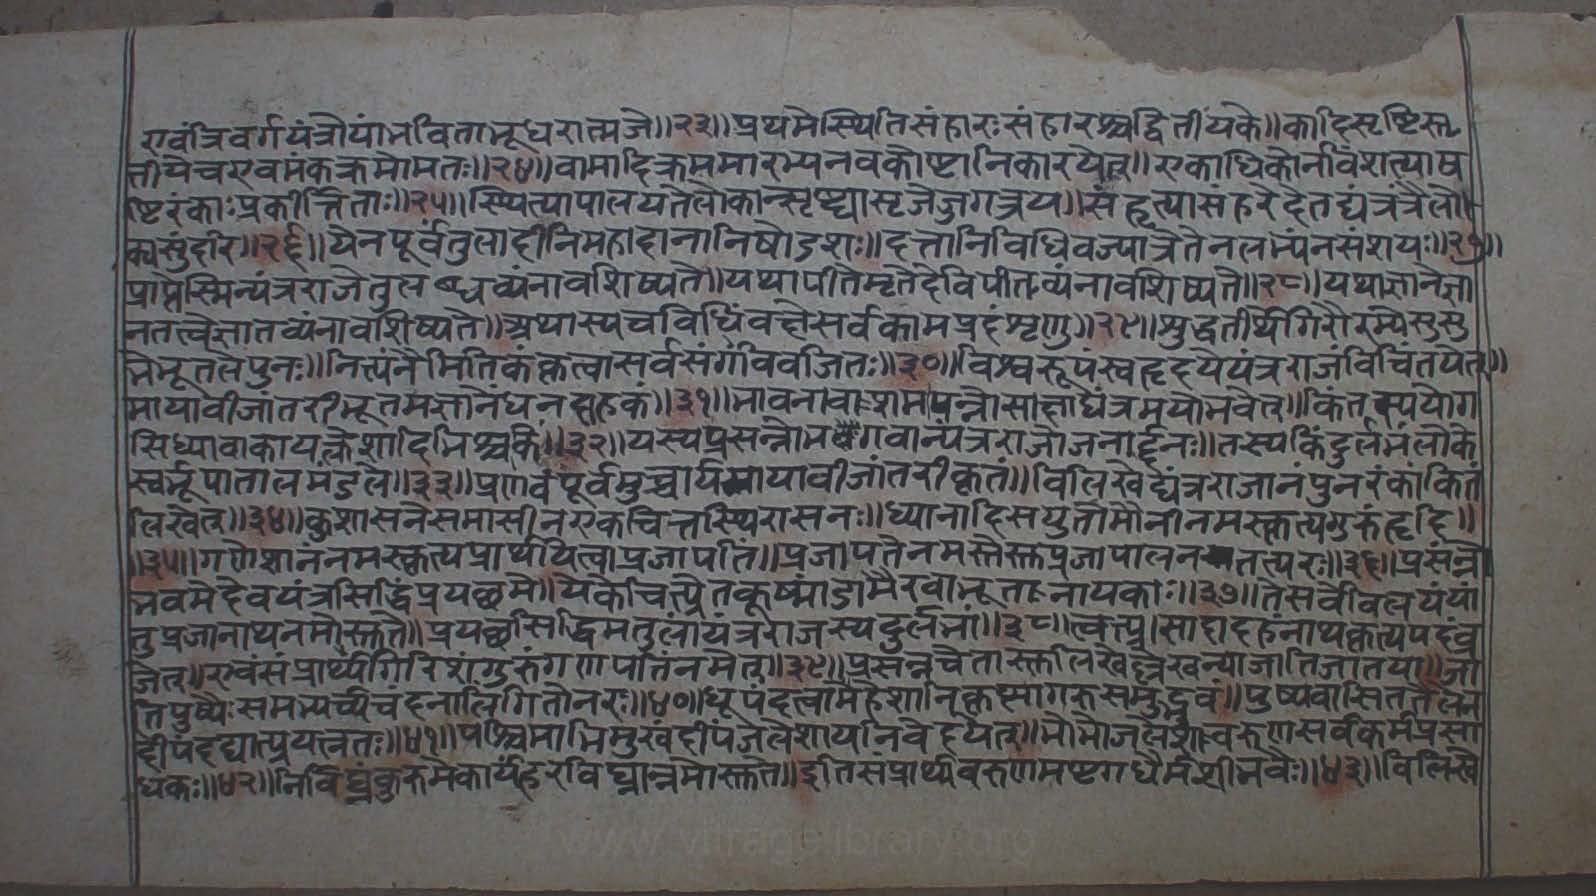 एवंत्रिवर्गयंत्रोयंभविताभूधरात्मजे॥२३॥प्रथमेस्थितिसंहारःसंहारश्चद्वितीयके॥कादिसृष्टिस्तृ
तीयेचएवमंकक्रमोमतः॥२४॥वामादिक्रममारभ्यनवकोष्टानिकारयेत्॥एकाधिकोर्नविंशत्याष
ष्टिरंकाःप्रकीर्त्तिताः॥२५॥स्थित्यापालयतेलोकान्सृष्ट्यासृजेज्जगत्रय॥संहृत्यासंहरेदेतद्यंत्रंत्रैलो
क्यसुंदरि॥२६॥येनपूर्वंतुलादीनिमहादानानिषोडशः॥दत्तानिविधिवत्पात्रेतेनलभ्यंनसंशयः॥२७॥
प्राप्तेस्मिन्यंत्रराजेतुलब्धव्यंनावशिष्यते॥यथापीतेमृतेदेविपीतव्यंनावशिष्यते॥२८॥यथाज्ञानेज्ञा
नतत्त्वेज्ञातव्यंनावशिष्यते॥अथास्यचविधिंवक्ष्येसर्वकामप्रदंशृणु॥२९॥शुद्धतीर्थेगिरौरम्येसुसु
भेभूतलेपुनः॥नित्यंनैमितिकंकृत्वासर्वसंगविवर्जितः॥३०॥विश्वरूपंस्वहृदयेयंत्रराजंविचिंतयेत्॥
मायावीजांतरीभूतमज्ञानेंधनदाहकं॥३१॥भावनावाशमापन्नोसाक्षाद्यंत्रमयोभवेत्॥किंतस्ययोग
सिध्यावाकायक्लेशादिभिश्चकिं॥३२॥यस्यप्रसन्नोभगवान्यंत्रराजोजनार्द्दनः॥तस्यकिंदुर्लभंलोके
स्वर्भूपातालमंडले॥३३॥प्रणवंपूर्वमुच्चार्यमायावीजांतरीकृतं॥विलिखेद्यंत्रराजानंपुनरंकांकितं
लिखेत्॥३४॥कुशासनेसमासीनएकचित्तस्थिरासनः॥ध्यानादिसयुतोमौनीनमस्कृत्यगुरुंहृदि॥
॥३५॥गणेशानंनमस्कृत्यप्रार्थयित्वाप्रजापतिं॥प्रजापतेनमस्तेस्तुप्रजापालनतत्परः॥३६॥प्रसंन्नो
भवमेदेवयंत्रसिद्धिंप्रयछमे॥येकेचित्प्रेतकूष्मांडाभैरवाभूतनायकाः॥३७॥तेसर्वेविलयंया
तुप्रजानाथनमोस्तुते॥प्रयछसिद्धिमतुलांयंत्रराजस्यदुर्लभां॥३८॥त्वत्प्रसादादहंनाथकृत्यपदंव्र
जेत्॥एवंसंप्रार्थ्यगिरिशंगुरुंगणपतिंनमेत्॥३९॥प्रसन्नचेतास्तुलिखेल्लेखन्याजातिजातया॥जा
तिपुष्पैःसमभ्यर्च्यचंदनालिंगितोनरः॥४०॥धूपंदत्वामहेशानिकृष्णागरुसमुद्भवं॥पुष्पवासिततैलेन
दीपंदद्यात्प्रयत्नतः॥४१॥पश्चिमाभिमुखंदीपंजलेशायनिवेदयेत्॥भोभोजलेशवरुणसर्वकर्मप्रसा
धकः॥४२॥निर्विघ्नंकुरुमेकार्यंहरविघ्नान्नमोस्तुते॥इतिसंप्रार्थ्यवरुणमष्टगंधैर्मशीभवैः॥४३॥विलिखे
www.vitragelibrary.org